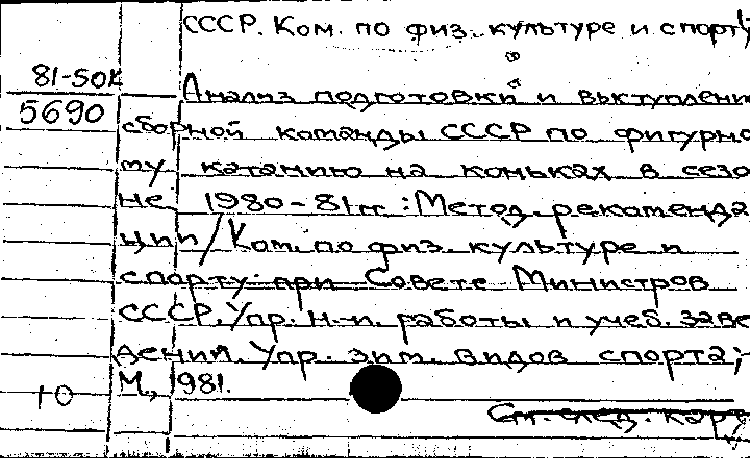 СССР. Ком. по физ. культуре и спорту
81-50К
5690
Анализ подготовки и выступлени
сборной команды СССР по фигурно
му катанию на коньках в сезо
не 1980-81 гг.: Метод. рекоменда
ции/Ком. по физ. культуре и
спорту при Совете Министров
СССР, Упр. н.-и. работы и учеб. заве
дений. Упр. зим. видов спорта;
М., 1981.
10
См. след. карт